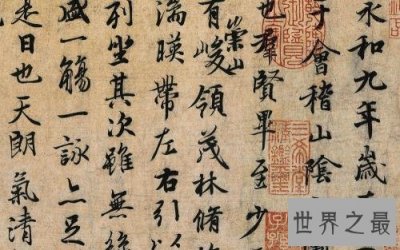 永和九年歲在
于會稽山陰
也羣賢畢至少
有崇山峻領茂林脩
湍暎帶左右引以
列坐其次雖無絲
盛一觴一詠亦足
是日也天朗氣清
世界之最